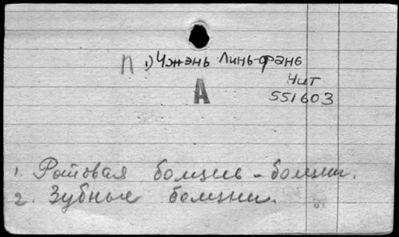 П 1) Чжэнь Линь-фэнь
Чит
А
551603
1. Ротовая болщнь - болщни.
2. Зубные болщни.